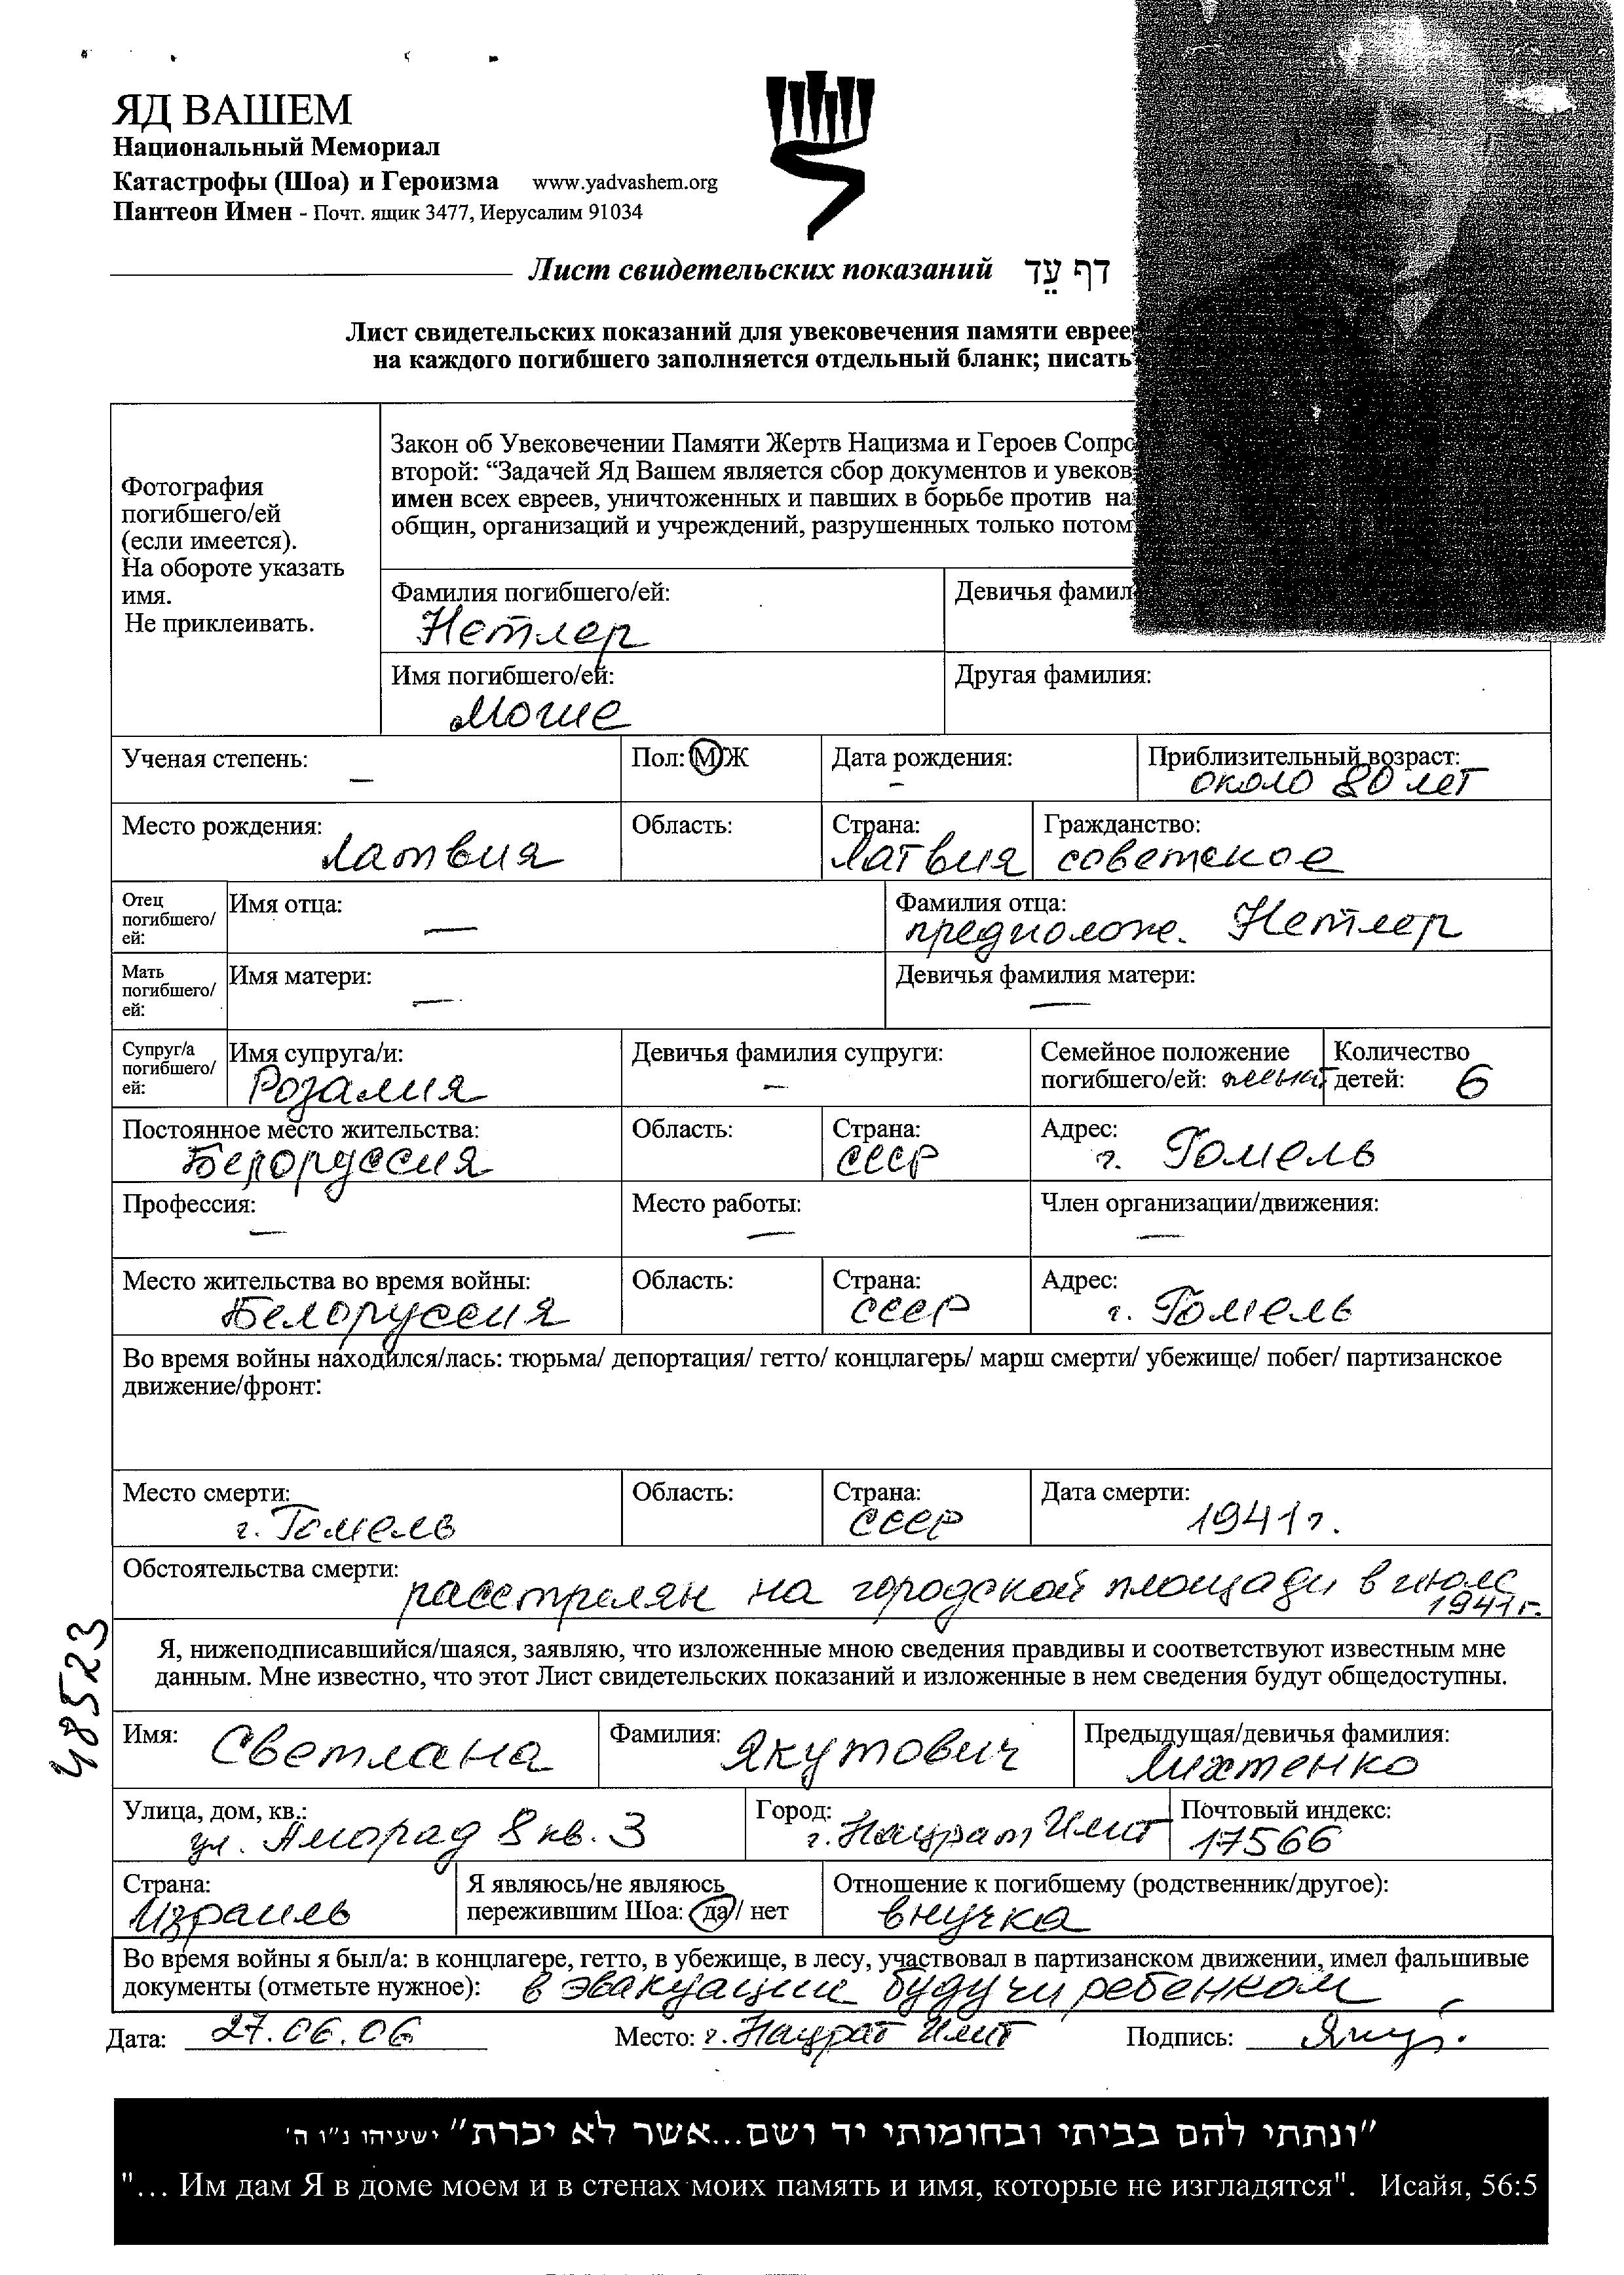 ЯД ВАШЕМ
Национальный Мемориал
Катастрофы (Шоа) и Героизма www.yadvashem.org
Пантеон Имен - Почт. ящик 3477, Иерусалим 91034
Лист свидетельских показаний דף עֵד
Лист свидетельских показаний для увековечения памяти еврее
на каждого погибшего заполняется отдельный бланк; писать
Фотография
погибшего/ей
(если имеется).
На обороте указать
имя.
Не приклеивать.
Закон об Увековечении Памяти Жертв Нацизма и Героев Сопро
второй: “Задачей Яд Вашем является сбор документов и увеков
имен всех евреев, уничтоженных и павших в борьбе против на
общин, организаций и учреждений, разрушенных только потом
Фамилия погибшего/ей: Девичья фамил
Нетлер
Имя погибшего/ей: Другая фамилия:
Моше
Ученая степень: Пол: М Ж Дата рождения: Приблизительный возраст:
– – около 80 лет
Место рождения: Область: Страна: Гражданство:
Латвия Латвия советское
Отец погибшего/ей: Имя отца: Фамилия отца:
— предположе. Нетлер
Мать погибшего/ей: Имя матери: Девичья фамилия матери:
— —
Супруг/а погибшего/ей: Имя супруга/и: Девичья фамилия супруги: Семейное положение Количество
погибшего/ей: женат детей: 6
Розалия –
Постоянное место жительства: Область: Страна: Адрес:
Белоруссия СССР г. Гомель
Профессия: Место работы: Член организации/движения:
— — —
Место жительства во время войны: Область: Страна: Адрес:
Белоруссия СССР г. Гомель
Во время войны находился/лась: тюрьма/ депортация/ гетто/ концлагерь/ марш смерти/ убежище/ побег/ партизанское
движение/фронт:
Место смерти: Область: Страна: Дата смерти:
г. Гомель СССР 1941 г.
Обстоятельства смерти:
расстрелян на городской площади в июле
1941 г.
48523
Я, нижеподписавшийся/шаяся, заявляю, что изложенные мною сведения правдивы и соответствуют известным мне
данным. Мне известно, что этот Лист свидетельских показаний и изложенные в нем сведения будут общедоступны.
Имя: Светлана Фамилия: Якутович Предыдущая/девичья фамилия:
Лихтенко
Улица, дом, кв.: Город: Почтовый индекс:
ул. Аморад 8 кв. 3 г. Нацрат Илит 17566
Страна: Я являюсь/не являюсь Отношение к погибшему (родственник/другое):
Израиль пережившим Шоа: да/ нет внучка
Во время войны я был/а: в концлагере, гетто, в убежище, в лесу, участвовал в партизанском движении, имел фальшивые
документы (отметьте нужное): в эвакуации будучи ребенком
Дата: 27.06.06 Место: г. Нацрат Илит Подпись: Якут.
"ונתתי להם בביתי ובחומותי יד ושם...אשר לא יכרת" ישעיהו נ"ו ה'
"... Им дам Я в доме моем и в стенах моих память и имя, которые не изгладятся". Исайя, 56:5